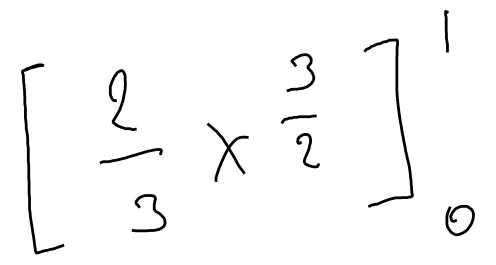 [2/3 x^{3/2}]_0^1